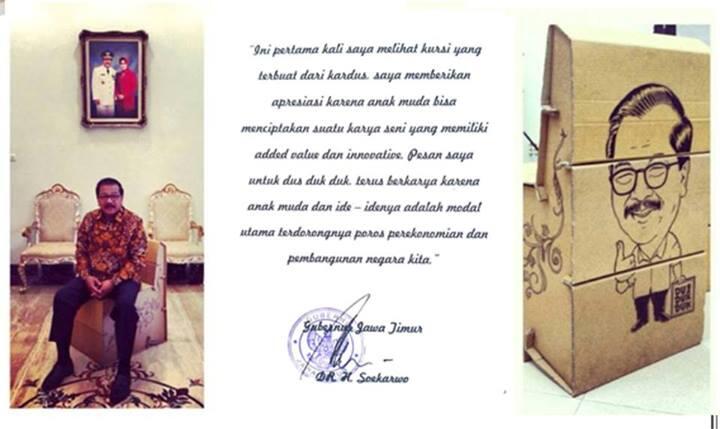 "Ini pertama kali saya melihat kursi yang
terbuat dari kardus, saya memberikan
apresiasi karena anak muda bisa
menciptakan suatu karya seni yang memiliki
added value dan innovative. Pesan saya
untuk dus duk duk, terus berkarya karena
anak muda dan ide – idenya adalah modal
utama terdorongnya poros perekonomian dan
pembangunan negara kita."
Gubernur Jawa Timur
DR. H. Soekarwo
DUS
DUK
DUK